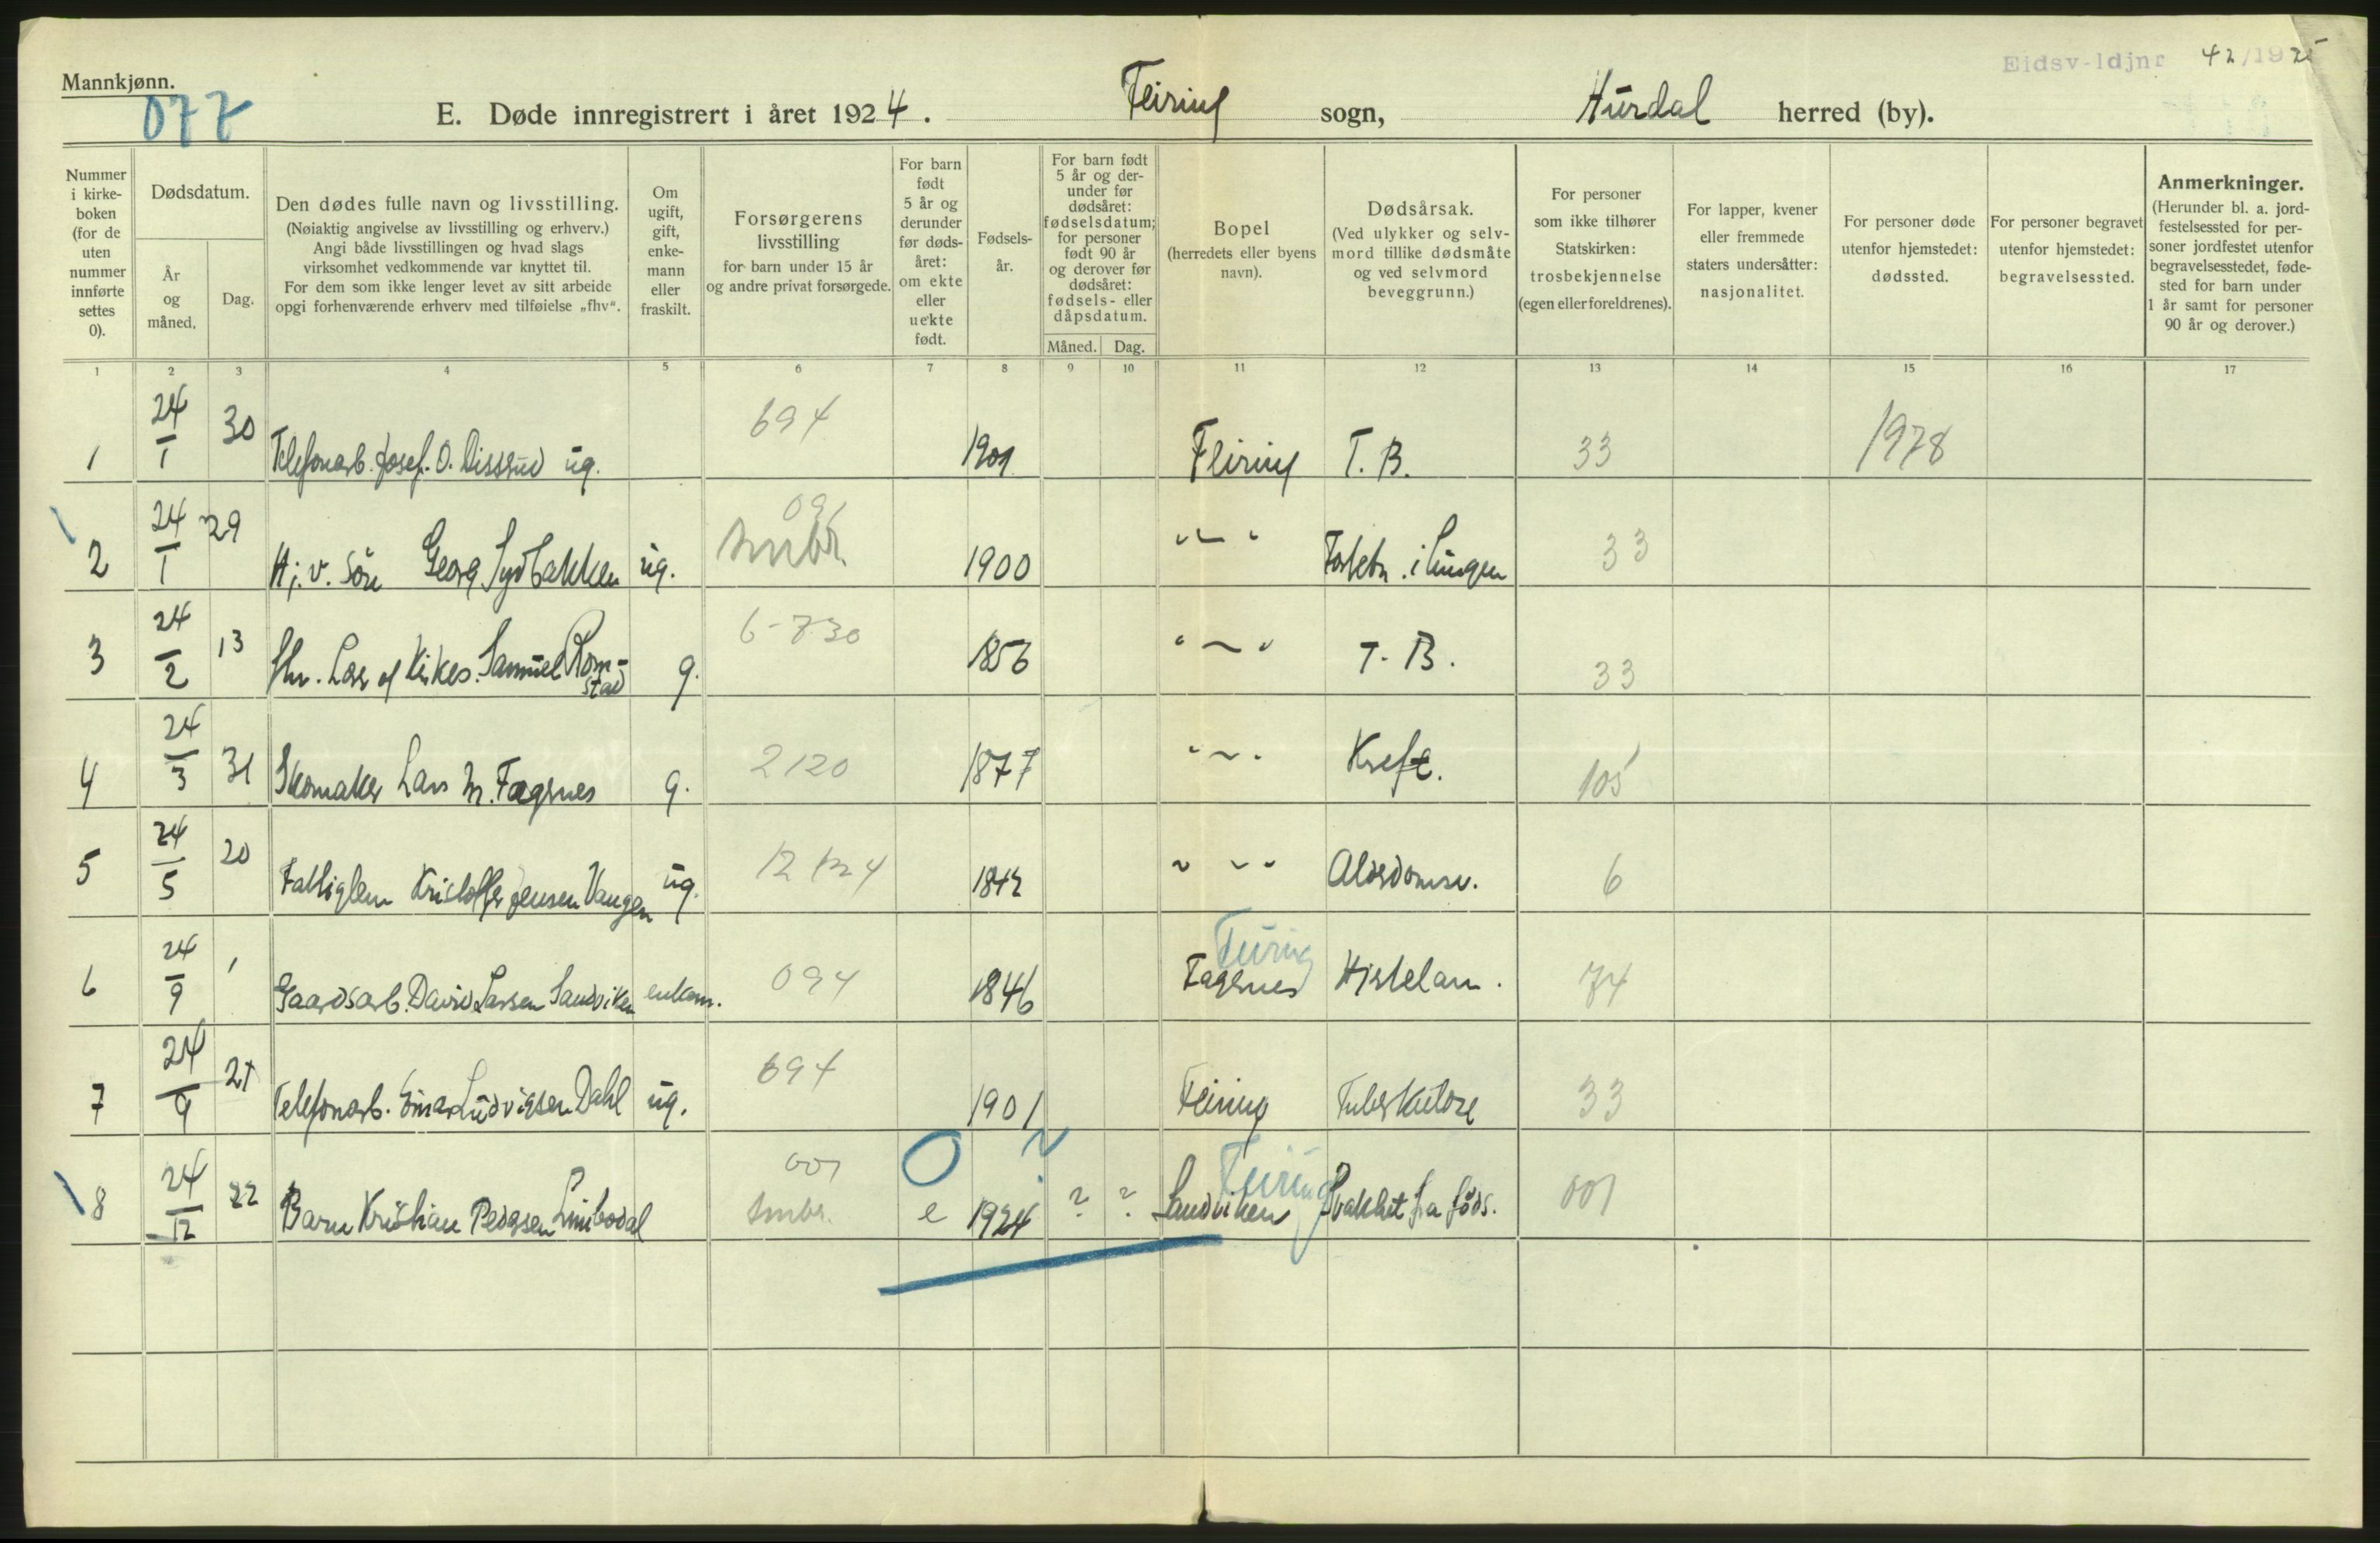 Mannkjønn.
077
Eidsv-ldjnr 42/1925
E. Døde innregistrert i året 1924. Feiring sogn, Hurdal herred (by).
Nummer i kirkeboken (for de uten nummer innførte settes 0).
Dødsdatum.
År og måned.
Dag.
Den dødes fulle navn og livsstilling.
(Nøiaktig angivelse av livsstilling og erhverv.)
Angi både livsstillingen og hvad slags
virksomhet vedkommende var knyttet til.
For dem som ikke lenger levet av sitt arbeide
opgi forhenværende erhverv med tilføielse „fhv“.
Om ugift, gift, enkemann eller fraskilt.
Forsørgerens livsstilling
for barn under 15 år
og andre privat forsørgede.
For barn født 5 år og derunder før dødsåret: om ekte eller uekte født.
Fødselsår.
For barn født 5 år og derunder før dødsåret: fødselsdatum; for personer født 90 år og derover før dødsåret: fødsels- eller dåpsdatum.
Måned. Dag.
Bopel
(herredets eller byens navn).
Dødsårsak.
(Ved ulykker og selvmord tillike dødsmåte og ved selvmord beveggrunn.)
For personer som ikke tilhører Statskirken: trosbekjennelse (egen eller foreldrenes).
For lapper, kvener eller fremmede staters undersåtter: nasjonalitet.
For personer døde utenfor hjemstedet: dødssted.
For personer begravet utenfor hjemstedet: begravelsessted.
Anmerkninger.
(Herunder bl. a. jordfestelsessted for personer jordfestet utenfor begravelsesstedet, fødested for barn under 1 år samt for personer 90 år og derover.)
1 2 3 4 5 6 7 8 9 10 11 12 13 14 15 16 17
1 24/1 30 Telefonarb. Josef. O. Disserud ug. 694 1901 Feiring T. B. 33 1978
2 24/1 29 Hj. v. Sön Georg Sydbakken ug. 091 Smbr. 1900 " — " i Lungen 33
3 24/2 13 fhv. Lærer og Kirkes. Samuel Romstad g. 6-730 1856 " — " T. B. 33
4 24/3 31 Skomaker Lars M. Fagernes g. 2120 1877 " — " Kreft. 105
5 24/5 20 Fattiglem Kristoffer Jensen Vangen ug. 1842 " — " Alderdomsv. 6
6 24/9 1 Gaardsarb. David Larsen Sandviken enkem. 094 1846 Feiring Fagernes Hjertelam. 74
7 24/9 21 Telefonarb. Einar Ludvigsen Dahl ug. 694 1901 Feiring Tuberkulose 33
8 24/12 22 Barn Kristian Pedersen Limbodal 001 Smbr. 0 e 1924 ? ? Feiring Sandviken Svakhet fra föds. 001